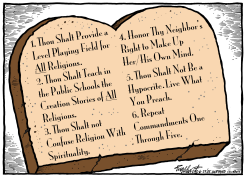 1. Thou Shalt Provide a
Level Playing Field for
All Religions.
2. Thou Shalt Teach in
the Public Schools the
Creation Stories of All
Religions.
3. Thou Shalt not
Confuse Religion With
Spirituality.
4. Honor Thy Neighbor's
Right to Make Up
Her/His Own Mind.
5. Thou Shalt Not Be a
Hypocrite. Live What
You Preach.
6. Repeat
Commandments One
Through Five.